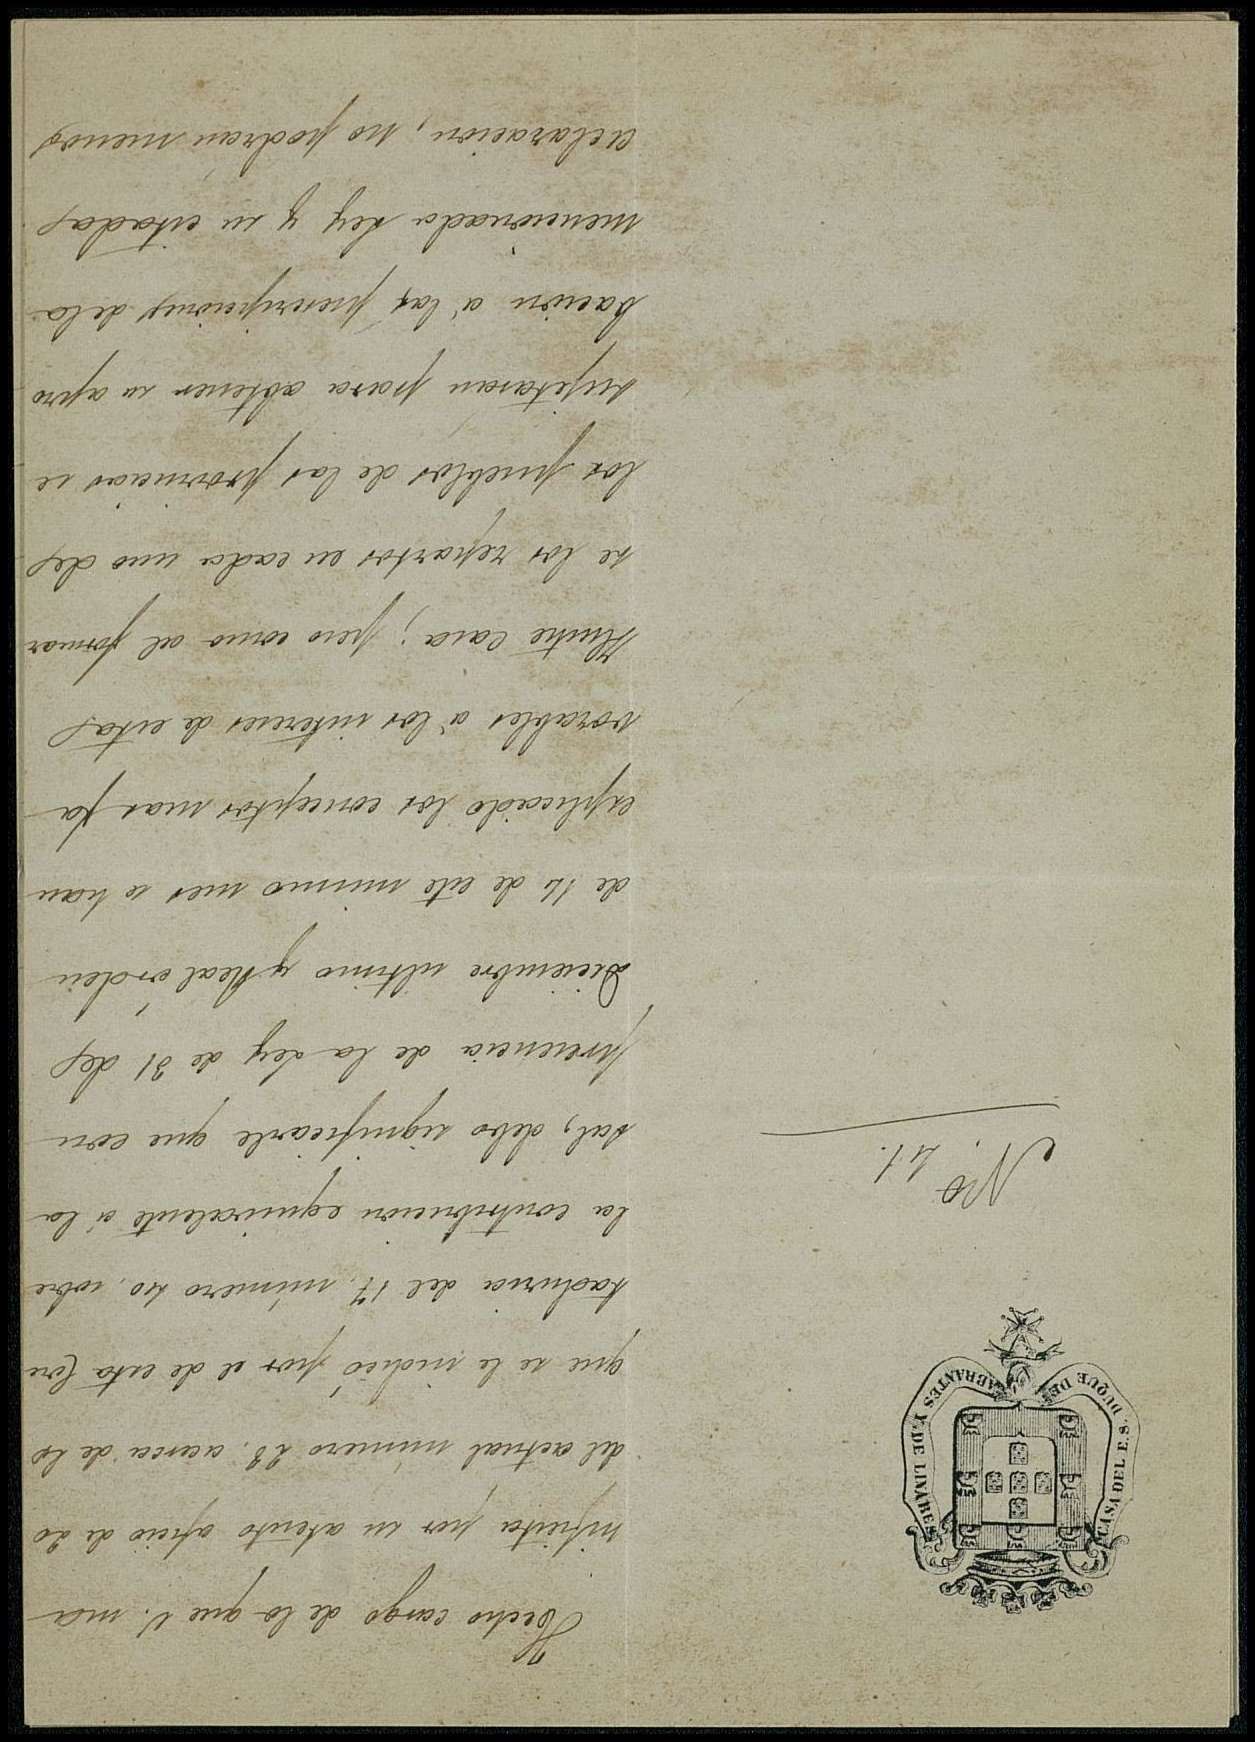 CASA DEL E.S. DUQUE DE ABRANTES Y DE LINARES
Nº 41.
Hecho cargo de lo que V. ma
nifiesta por su atento oficio de 20
del actual número 23. acerca de lo
que se le indicó por el de esta Con
taduria del 17. número 20. sobre
la contribucion equivalente á la
sal, debo significarle que con
presencia de la Ley de 31 de
Diciembre ultimo y Real órden
de 12 de este mismo mes se han
esplicado los conceptos mas fa
vorables á los intereses de esta
Ilustre Casa; pero como al formar
se los repartos en cada uno de
los pueblos de las provincias se
sujetaran para obtener su apro
bacion á las prescripciones de la
mencionada Ley y su citada
aclaracion, no podran menos